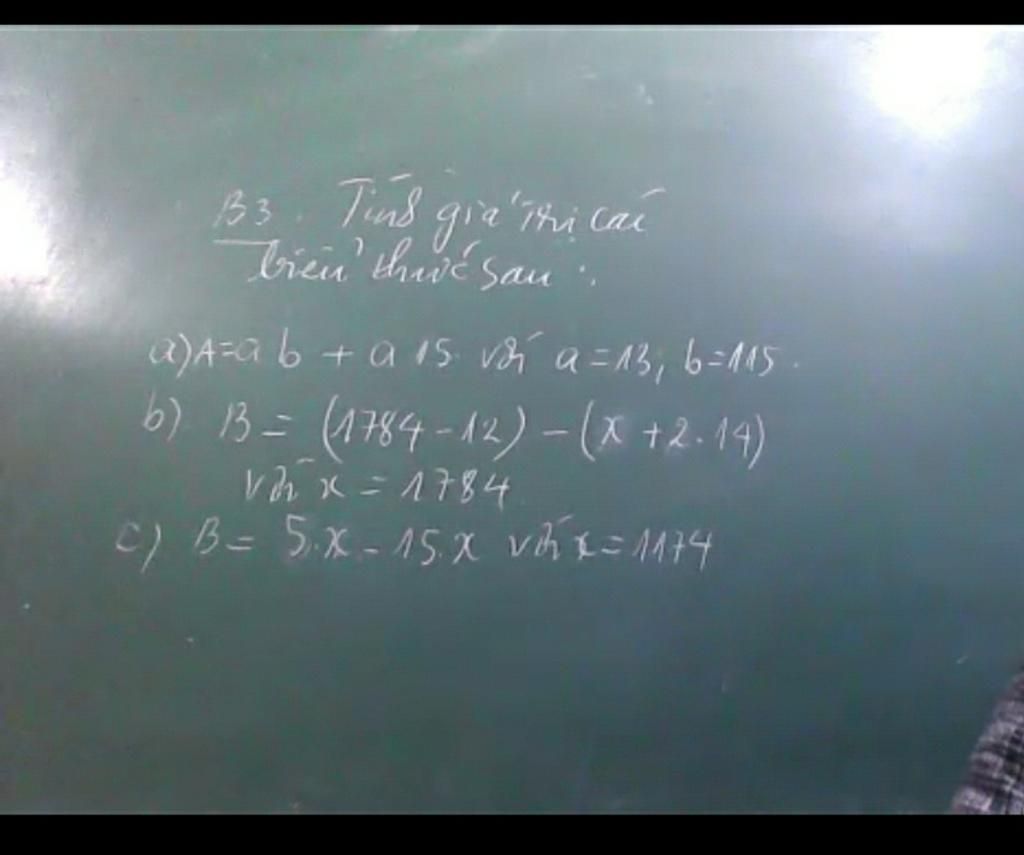 B3. Tính giá trị các
biểu thức sau:
a) A = a b + a 15 với a = 13, b = 115.
b) B = (1784 - 12) - (x + 2.14)
với x = 1784
c) B = 5.x - 15.x với x = 1174